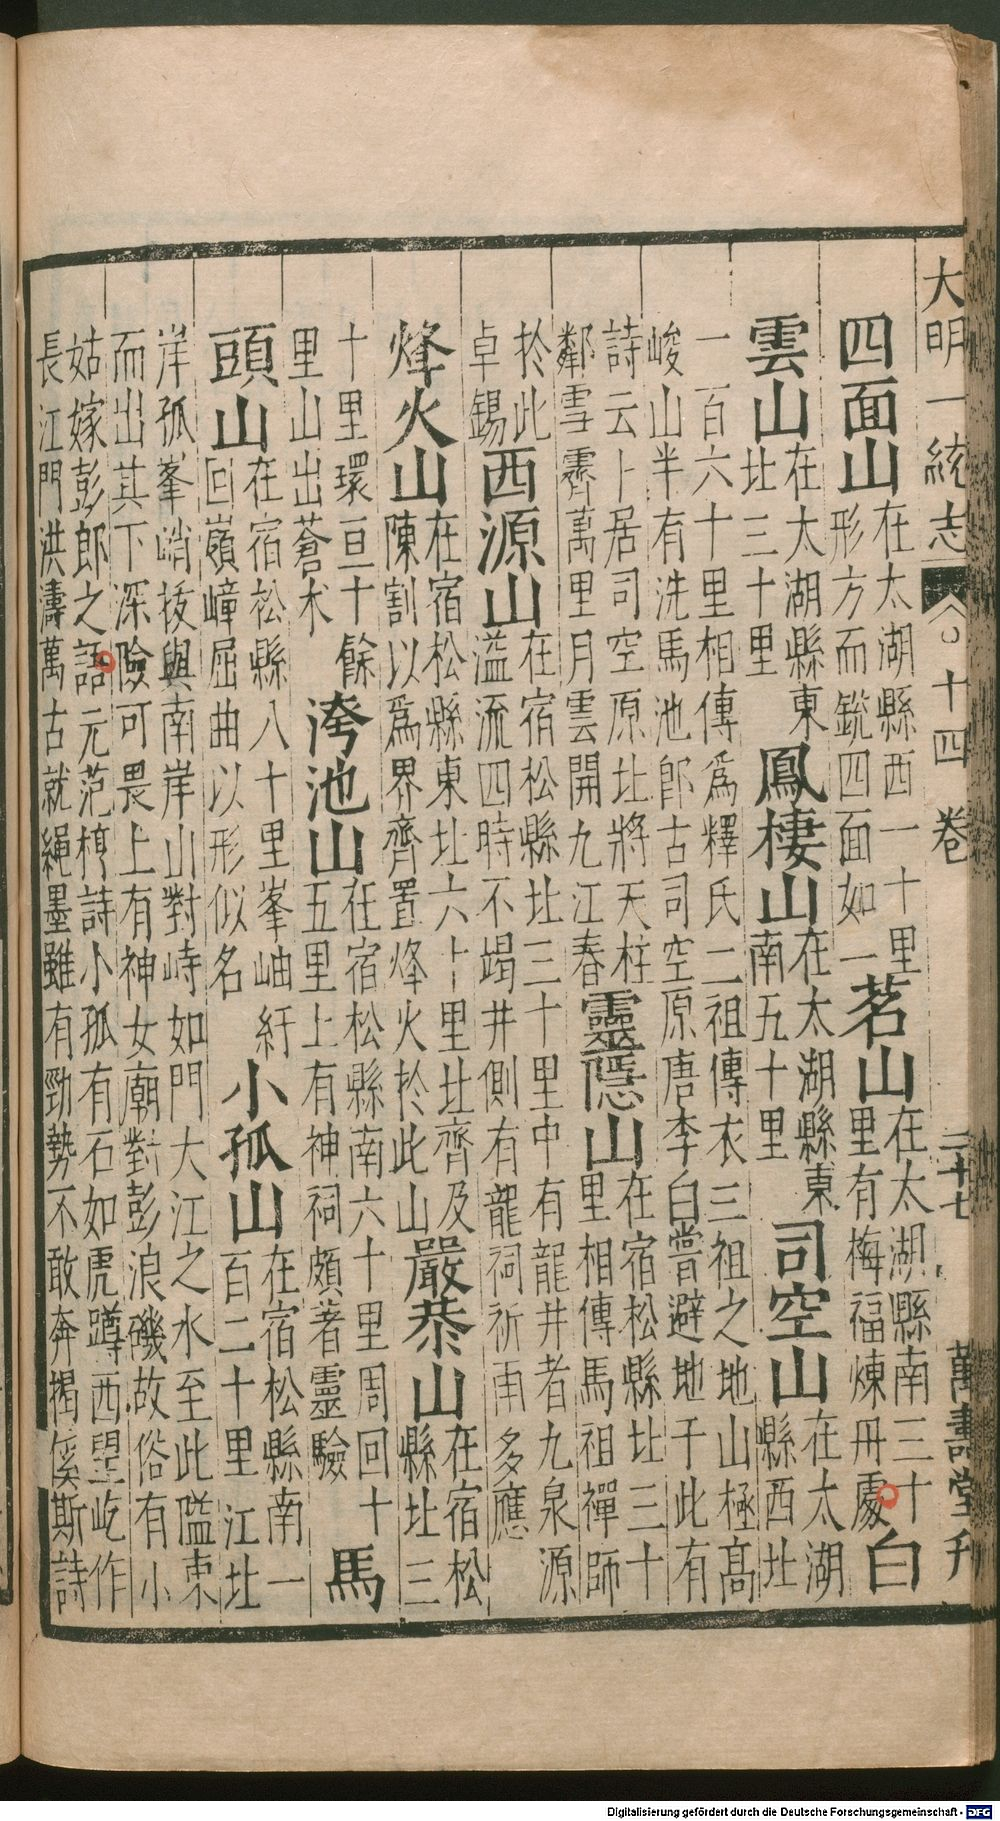 大明一統志 八 ○十四卷 二十七 萬壽堂刊
四面山 在太湖縣西一十里
形方而銳四面如一 茗山 在太湖縣南三十
里有梅福煉丹處 白
雲山 在太湖縣東
北三十里 鳳棲山 在太湖縣東
南五十里 司空山 在太湖
縣西北
一百六十里相傳爲釋氏二祖傳衣三祖之地山極高
峻山半有洗馬池卽古司空原唐李白嘗避地于此有
詩云卜居司空原北將天柱
鄰雪霽萬里月雲開九江春 靈隱山 在宿松縣北三十
里相傳馬祖禪師
於此
卓錫 西源山 在宿松縣北三十里中有龍井者九泉源
溢流四時不竭井側有龍祠祈雨多應
烽火山 在宿松縣東北六十里北齊及
陳割以爲界齊置烽火於此山 嚴恭山 在宿松
縣北三
十里環亘十餘
里山出蒼朮 洿池山 在宿松縣南六十里周回十
五里上有神祠頗著靈驗 馬
頭山 在宿松縣八十里峯岫紆
回嶺嶂屈曲以形似名 小孤山 在宿松縣南一
百二十里江北
岸孤峯峭拔與南岸山對峙如門大江之水至此隘束
而出其下深險可畏上有神女廟對彭浪磯故俗有小
姑嫁彭郎之語元范梈詩小孤有石如虎蹲西望屹作
長江門洪濤萬古就繩墨雖有勁勢不敢奔揭傒斯詩
Digitalisierung gefördert durch die Deutsche Forschungsgemeinschaft - DFG